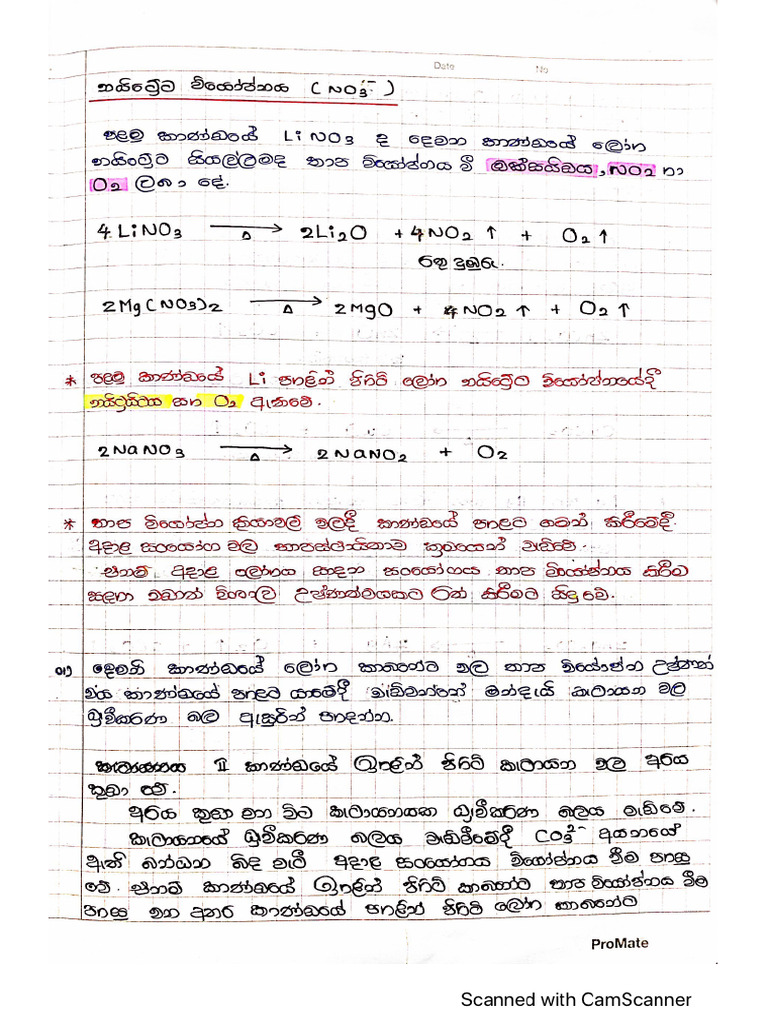 Date No
නයිට්‍රේට වියෝජනය (NO₃⁻)
පළමු කාණ්ඩයේ LiNO₃ ද දෙවන කාණ්ඩයේ ලෝහ
නයිට්‍රේට සියල්ලමද තාප වියෝජනය වී ඔක්සයිඩය, NO₂ හා
O₂ ලබා දේ.
4LiNO₃ →Δ 2Li₂O + 4NO₂ ↑ + O₂ ↑
රතු දුඹුරු.
2Mg(NO₃)₂ →Δ 2MgO + 4NO₂ ↑ + O₂ ↑
* පළමු කාණ්ඩයේ Li පහළින් පිහිටි ලෝහ නයිට්‍රේට වියෝජනයේදී
නයිට්‍රයිට සහ O₂ ඇතිවේ.
2NaNO₃ →Δ 2NaNO₂ + O₂
* තාප වියෝජන ක්‍රියාවලි වලදී කාණ්ඩයේ පහළට ගමන් කිරීමේදී
අදාළ සංයෝග වල තාපස්ථායිතාව ක්‍රමයෙන් වැඩිවේ.
එනම් අදාළ ලෝහය සාදන සංයෝගය තාප වියෝජනය කිරීම
සඳහා වඩාත් විශාල උෂ්ණත්වයකට රත් කිරීමට සිදු වේ.
01) දෙවන කාණ්ඩයේ ලෝහ කාබනේට වල තාප වියෝජන උෂ්ණත්
වය කාණ්ඩයේ පහළට යාමේදී වැඩිවන්නේ මන්දැයි කැටායන වල
ධ්‍රැවීකරණ බල ඇසුරින් පහදන්න.
II කාණ්ඩයේ ඉහළින් පිහිටි කැටායන වල අරය
කුඩා වේ.
අරය කුඩා වන විට කැටායනයක ධ්‍රැවීකරණ බලය වැඩිවේ.
කැටායනයේ ධ්‍රැවීකරණ බලය වැඩිවීමේදී CO₃²⁻ අයනයේ
ඇති බන්ධන බිඳ වැටී අදාළ සංයෝගය වියෝජනය වීම පහසු
වේ. එනම් කාණ්ඩයේ ඉහළින් පිහිටි කාබනේට තාප වියෝජනය වීම
පහසු වන අතර කාණ්ඩයේ පහළින් පිහිටි ලෝහ කාබනේට
ProMate
Scanned with CamScanner